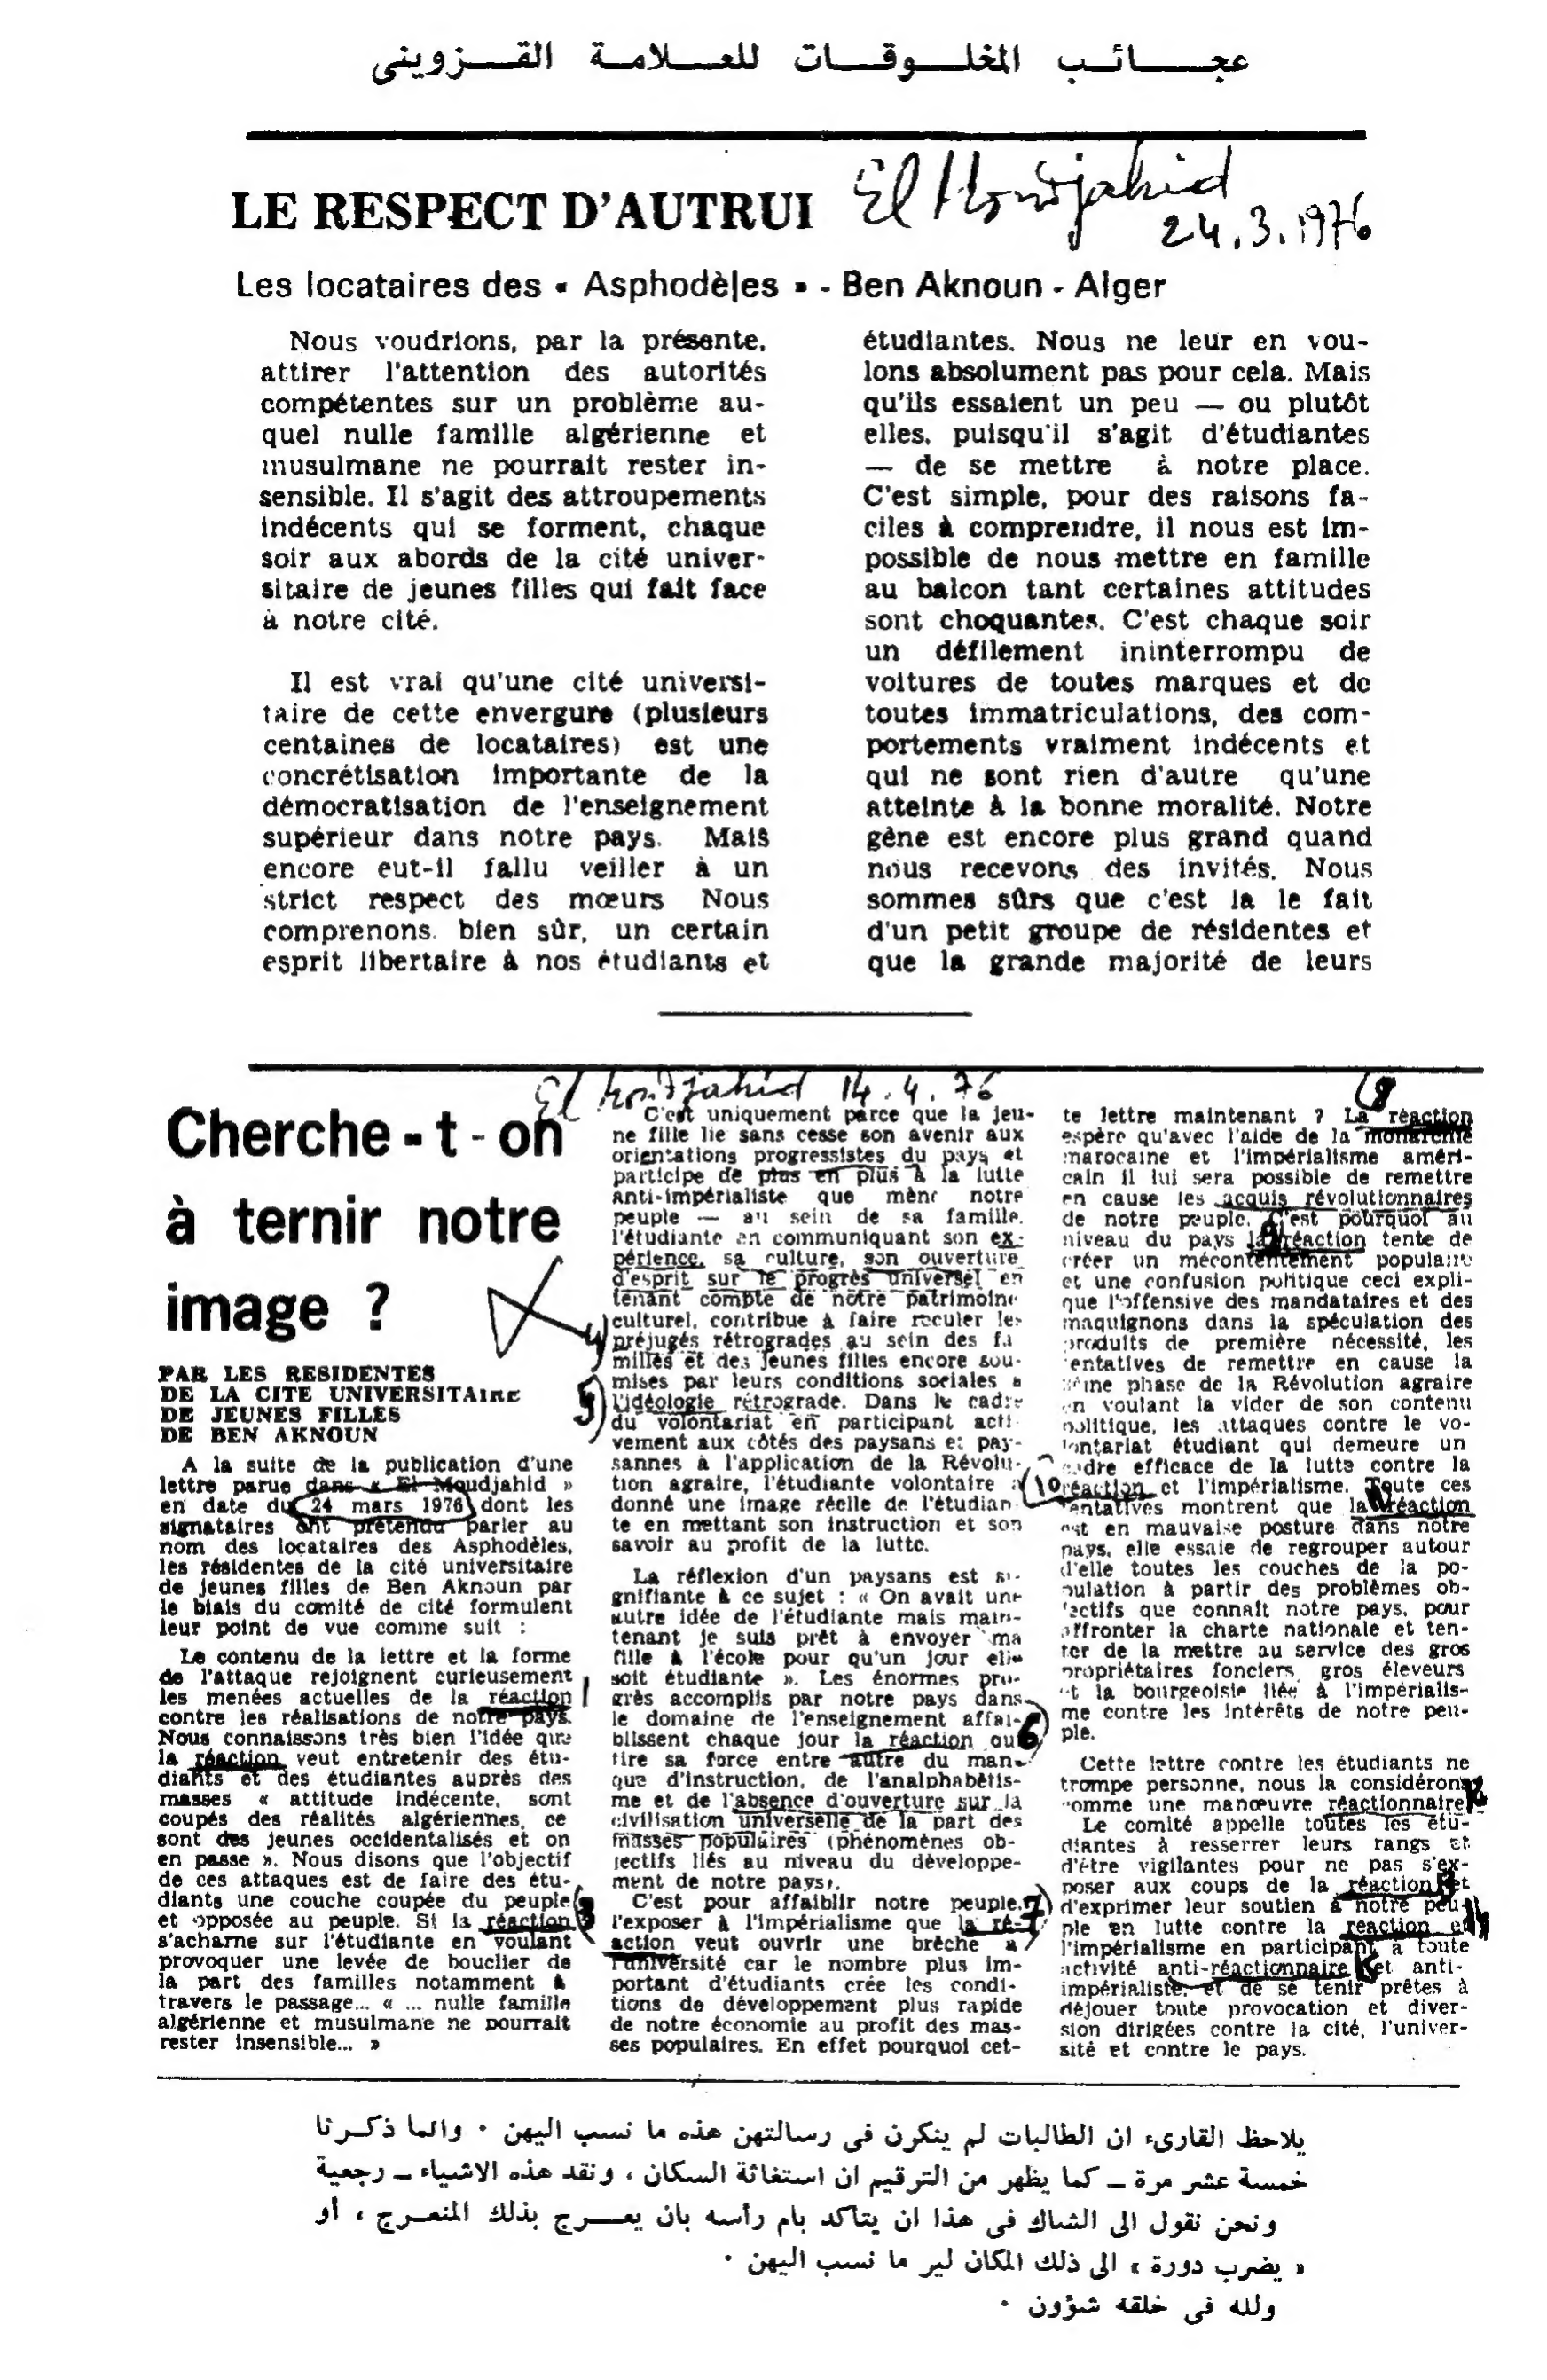 عجائب المخلوقات للعلامة القزويني
LE RESPECT D'AUTRUI
El Moudjahid
24.3.1976
Les locataires des « Asphodèles » - Ben Aknoun - Alger
Nous voudrions, par la présente,
attirer l'attention des autorités
compétentes sur un problème au-
quel nulle famille algérienne et
musulmane ne pourrait rester in-
sensible. Il s'agit des attroupements
indécents qui se forment, chaque
soir aux abords de la cité univer-
sitaire de jeunes filles qui fait face
à notre cité.
Il est vrai qu'une cité universi-
taire de cette envergure (plusieurs
centaines de locataires) est une
concrétisation importante de la
démocratisation de l'enseignement
supérieur dans notre pays. Mais
encore eut-il fallu veiller à un
strict respect des mœurs Nous
comprenons. bien sûr, un certain
esprit libertaire à nos étudiants et
étudiantes. Nous ne leur en vou-
lons absolument pas pour cela. Mais
qu'ils essaient un peu — ou plutôt
elles, puisqu'il s'agit d'étudiantes
— de se mettre à notre place.
C'est simple, pour des raisons fa-
ciles à comprendre, il nous est im-
possible de nous mettre en famille
au balcon tant certaines attitudes
sont choquantes. C'est chaque soir
un défilement ininterrompu de
voitures de toutes marques et de
toutes immatriculations, des com-
portements vraiment indécents et
qui ne sont rien d'autre qu'une
atteinte à la bonne moralité. Notre
gêne est encore plus grand quand
nous recevons des invités. Nous
sommes sûrs que c'est la le fait
d'un petit groupe de résidentes et
que la grande majorité de leurs
El Moudjahid 14.4.76
Cherche-t-on
à ternir notre
image ?
PAR LES RESIDENTES
DE LA CITE UNIVERSITAIRE
DE JEUNES FILLES
DE BEN AKNOUN
A la suite de la publication d'une
lettre parue dans « El Moudjahid »
en date du 24 mars 1976 dont les
signataires ont prétendu parler au
nom des locataires des Asphodèles,
les résidentes de la cité universitaire
de jeunes filles de Ben Aknoun par
le biais du comité de cité formulent
leur point de vue comme suit :
Le contenu de la lettre et la forme
de l'attaque rejoignent curieusement
les menées actuelles de la réaction 1
contre les réalisations de notre pays.
Nous connaissons très bien l'idée que
la réaction veut entretenir des étu-
diants et des étudiantes auprès des
masses « attitude indécente, sont
coupés des réalités algériennes, ce
sont des jeunes occidentalisés et on
en passe ». Nous disons que l'objectif
de ces attaques est de faire des étu-
diants une couche coupée du peuple
et opposée au peuple. Si la réaction 3
s'acharne sur l'étudiante en voulant
provoquer une levée de bouclier de
la part des familles notamment à
travers le passage... « ... nulle famille
algérienne et musulmane ne pourrait
rester insensible... »
C'est uniquement parce que la jeu-
ne fille lie sans cesse son avenir aux
orientations progressistes du pays et
participe de plus en plus à la lutte
anti-impérialiste que mène notre
peuple — au sein de sa famille.
l'étudiante en communiquant son ex-
périence, sa culture, son ouverture
d'esprit sur le progrès universel en
tenant compte de notre patrimoine
culturel, contribue à faire reculer les
4 préjugés rétrogrades au sein des fa
milles et des jeunes filles encore sou-
mises par leurs conditions sociales à
5 l'idéologie rétrograde. Dans le cadre
du volontariat en participant acti
vement aux côtés des paysans et pay-
sannes à l'application de la Révolu-
tion agraire, l'étudiante volontaire a
donné une image réelle de l'étudian
te en mettant son instruction et son
savoir au profit de la lutte.
La réflexion d'un paysans est si-
gnifiante à ce sujet : « On avait une
autre idée de l'étudiante mais main-
tenant je suis prêt à envoyer ma
fille à l'école pour qu'un jour elle
soit étudiante ». Les énormes pro-
grès accomplis par notre pays dans
le domaine de l'enseignement affai-
blissent chaque jour la réaction qui 6
tire sa force entre autre du man-
que d'instruction, de l'analphabétis-
me et de l'absence d'ouverture sur la
civilisation universelle de la part des
masses populaires (phénomènes ob-
jectifs liés au niveau du développe-
ment de notre pays).
C'est pour affaiblir notre peuple,
l'exposer à l'impérialisme que la ré- 7
action veut ouvrir une brèche à
l'université car le nombre plus im-
portant d'étudiants crée les condi-
tions de développement plus rapide
de notre économie au profit des mas-
ses populaires. En effet pourquoi cet-
8
te lettre maintenant ? La réaction
espère qu'avec l'aide de la monarchie
marocaine et l'impérialisme améri-
cain il lui sera possible de remettre
en cause les acquis révolutionnaires
de notre peuple. C'est pourquoi au
niveau du pays la 9 réaction tente de
créer un mécontentement populaire
et une confusion politique ceci expli-
que l'offensive des mandataires et des
maquignons dans la spéculation des
produits de première nécessité, les
tentatives de remettre en cause la
phase de la Révolution agraire
en voulant la vider de son contenu
politique, les attaques contre le vo-
lontariat étudiant qui demeure un
cadre efficace de la lutte contre la
10 réaction et l'impérialisme. Toute ces
tentatives montrent que la réaction
est en mauvaise posture dans notre
pays, elle essaie de regrouper autour
d'elle toutes les couches de la po-
pulation à partir des problèmes ob-
jectifs que connaît notre pays, pour
affronter la charte nationale et ten-
ter de la mettre au service des gros
propriétaires fonciers, gros éleveurs
et la bourgeoisie liée à l'impérialis-
me contre les intérêts de notre peu-
ple.
Cette lettre contre les étudiants ne
trompe personne, nous la considérons
comme une manœuvre réactionnaire 12
Le comité appelle toutes les étu-
diantes à resserrer leurs rangs et
d'être vigilantes pour ne pas s'ex-
poser aux coups de la réaction 13 et
d'exprimer leur soutien à notre peu-
ple en lutte contre la réaction et 14
l'impérialisme en participant à toute
activité anti-réactionnaire 15 et anti-
impérialiste, et de se tenir prêtes à
déjouer toute provocation et diver-
sion dirigées contre la cité, l'univer-
sité et contre le pays.
يلاحظ القارىء ان الطالبات لم ينكرن فى رسالتهن هذه ما نسب اليهن · وانما ذكرنا
خمسة عشر مرة – كما يظهر من الترقيم ان استغاثة السكان ، ونقد هذه الاشياء – رجعية
ونحن نقول الى الشاك فى هذا ان يتاكد بام رأسه بان يعرج بذلك المنعرج ، أو
« يضرب دورة » الى ذلك المكان لير ما نسب اليهن ·
ولله فى خلقه شؤون ·